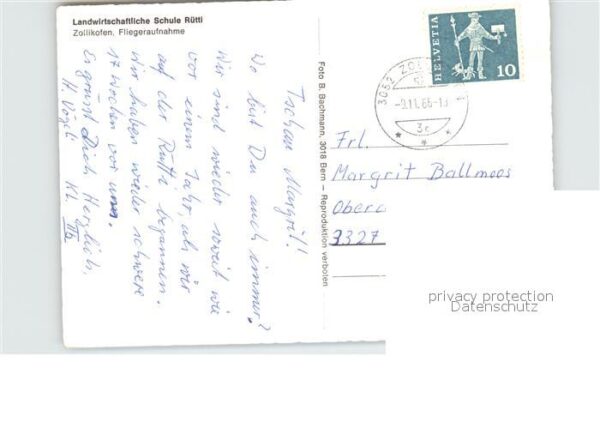 Landwirtschaftliche Schule Rütti
Zollikofen, Fliegeraufnahme
Tschau Margrit!
Wo bist Du auch immer?
Wir sind wieder soweit wie
vor einem Jahr, als wir
auf der Rütti begannen.
Wir haben wieder schwere
17 Wochen vor uns.
Es grüsst Dich Herzlich,
H. Vögli Kl. IIb
Foto B. Bachmann, 3018 Bern — Reproduktion verboten
HELVETIA
10
3052 ZO
-9.11.66-1
3c
Frl.
Margrit Ballmoos
Oberö
3327
privacy protection
Datenschutz